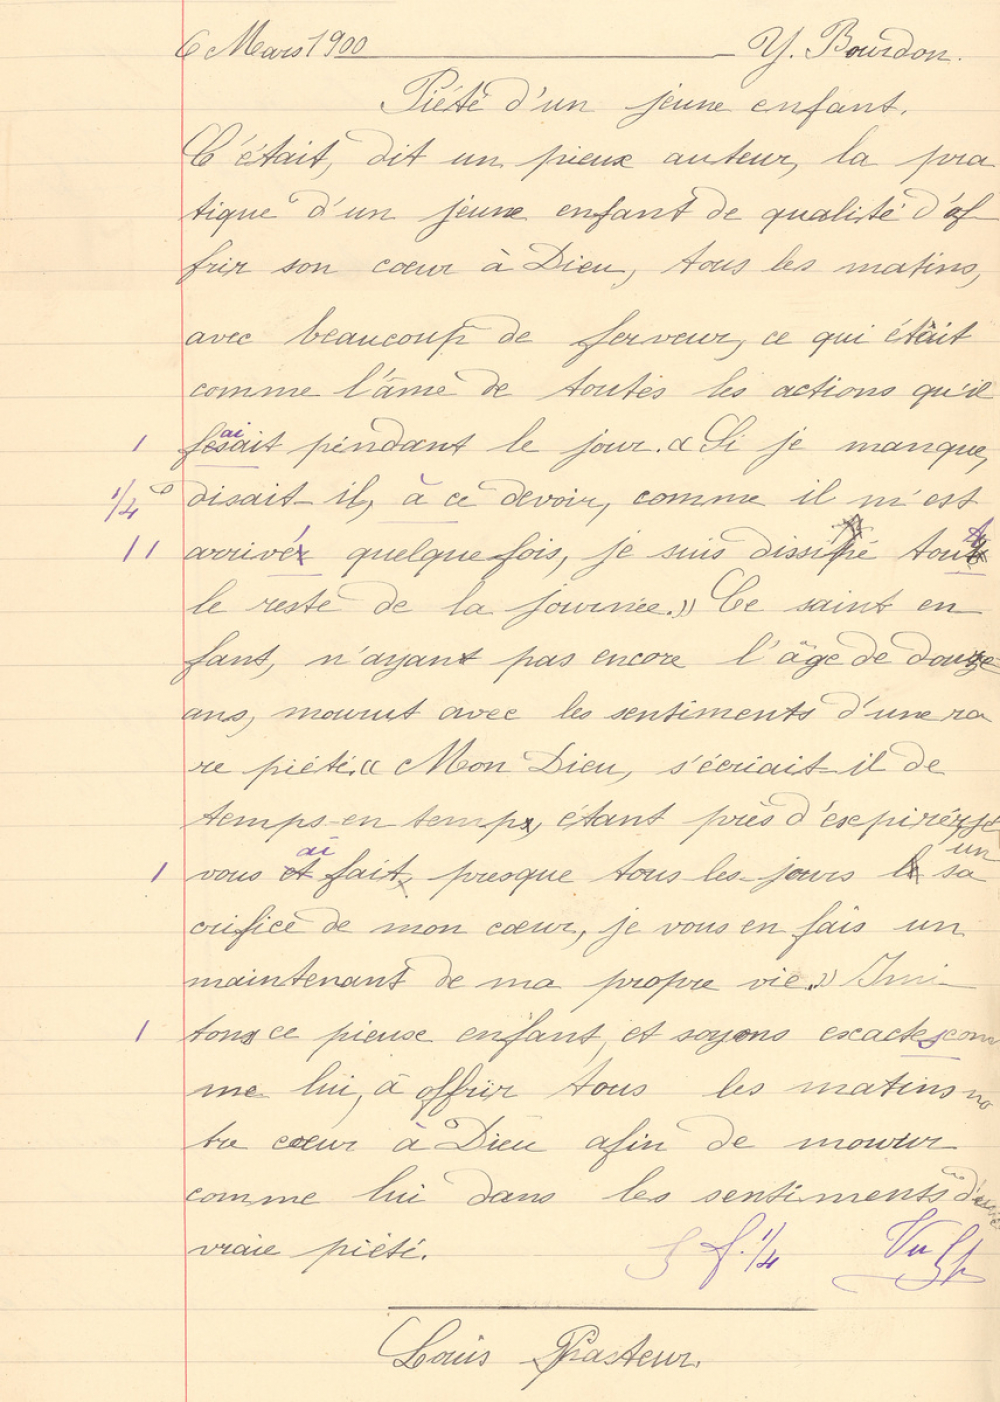 6 Mars 1900 Y. Bourdon.
Piété d'un jeune enfant.
C'était, dit un pieux auteur, la pra
tique d'un jeune enfant de qualité d'of
frir son cœur à Dieu, tous les matins,
avec beaucoup de ferveur, ce qui était
comme l'âme de toutes les actions qu'il
1 fesait ai pendant le jour. « Si je manque,
1/4 disait-il, à ce devoir, comme il m'est
11 arrivé quelque fois, je suis dissipé tout
le reste de la journée. » Ce saint en
fant, n'ayant pas encore l'âge de douze
ans, mourut avec les sentiments d'une ra
re piété. « Mon Dieu, s'écriait-il de
temps-en temps, étant près d'expirer, je
1 vous et ai fait, presque tous les-jours le un sa
crifice de mon cœur, je vous en fais un
maintenant de ma propre vie. » Imi-
1 tons ce pieuse enfant, et soyons exactes com
me lui, à offrir tous les matins no
tre cœur à Dieu afin de mourir
comme lui dans les sentiments d'une
vraie piété.
f. 1/4 Vu
Louis Pasteur.